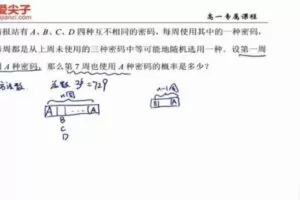 爱尖子
高一专属课程
报站有 A、B、C、D 四种互不相同的密码，每周使用其中的一种密码，
每周都是从上周未使用的三种密码中等可能地随机选用一种．设第一周
用 A 种密码，那么第 7 周也使用 A 种密码的概率是多少？
方法数
总数 3⁶=729
n周
n-1周
A
...
A
A
B
C
D